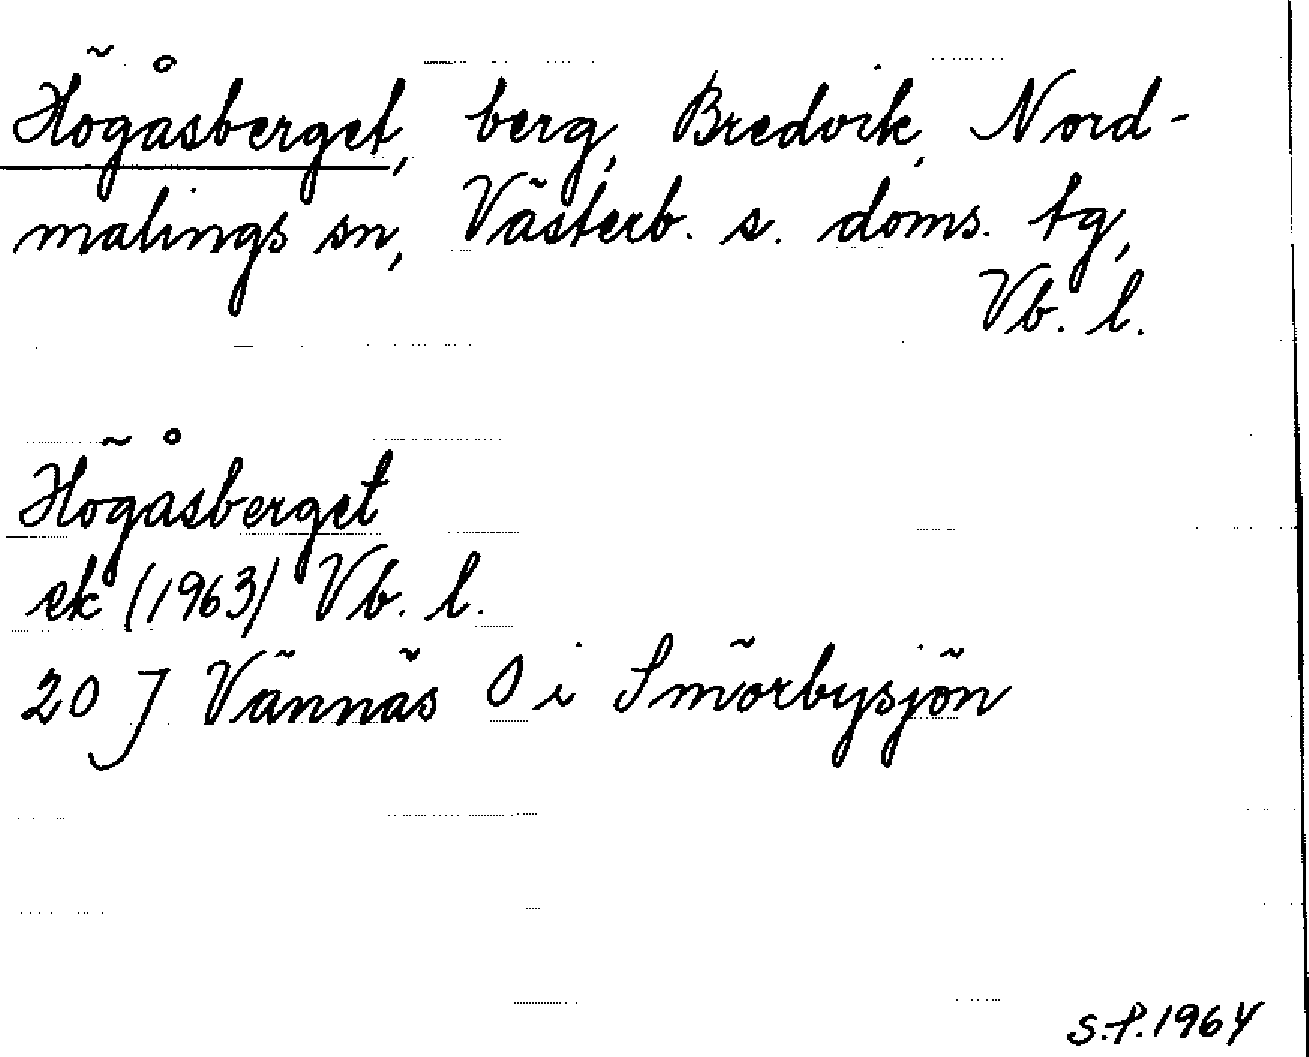 Högåsberget, berg, Bredvik, Nord-
malings sn, Västerb. s. doms. tg,
Vb. l.
Högåsberget
ek (1963) Vb. l.
20 J Vännäs O i Smörbysjön
S.P. 1964